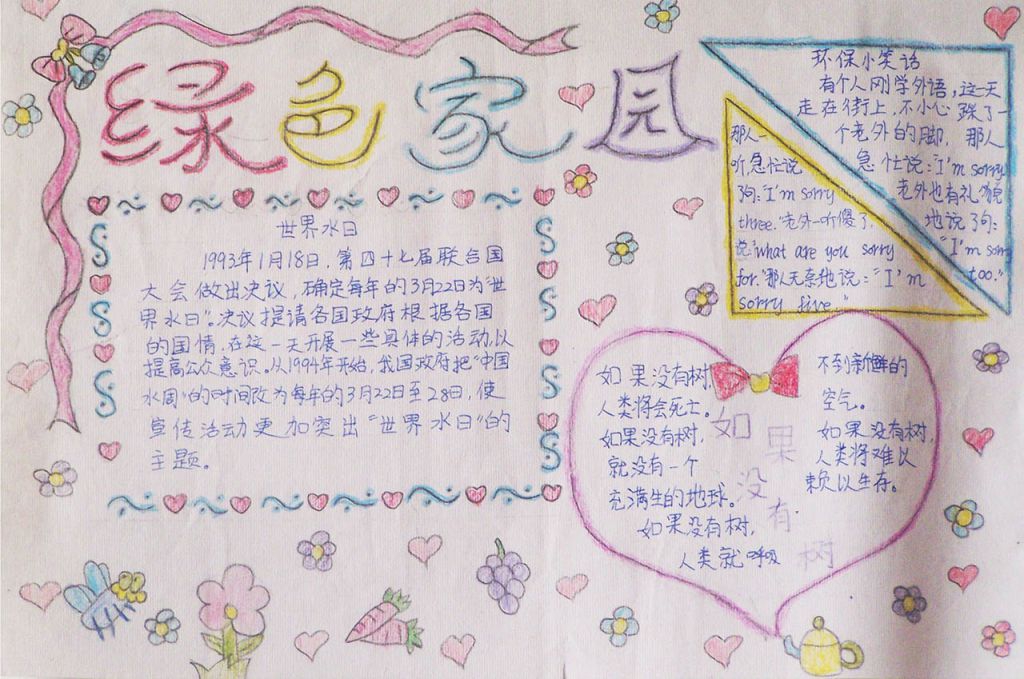 绿色家园
世界水日
1993年1月18日，第四十七届联合国
大会做出决议，确定每年的3月22日为“世
界水日”。决议提请各国政府根据各国
的国情，在这一天开展一些具体的活动，以
提高公众意识。从1994年开始，我国政府把“中国
水周”的时间改为每年的3月22日至28日，使
宣传活动更加突出“世界水日”的
主题。
环保小笑话
有个人刚学外语，这一天
走在街上，不小心踩了一
个老外的脚，那人
急忙说：“I'm sorry
老外也有礼貌
地说了句：
“I'm sorry
too.”
那人一
听，急忙说
句：“I'm sorry
three.”老外一听傻了，
说：“what are you sorry
for.”那人无奈地说：“I'm
sorry five.”
如果没有树
如果没有树，
人类将会死亡。
如果没有树，
就没有一个
充满生的地球。
如果没有树，
人类就呼吸
不到新鲜的
空气。
如果没有树，
人类将难以
赖以生存。